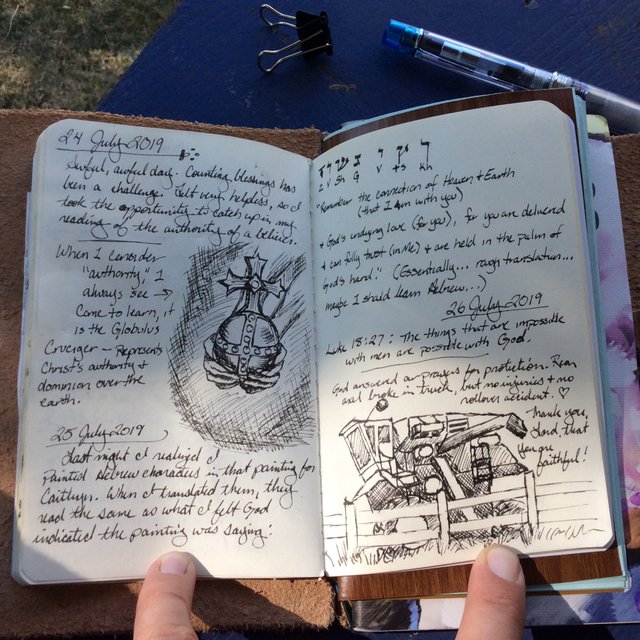 24 July 2019
Awful, awful day. Counting blessings has
been a challenge. Felt very helpless, so I
took the opportunity to catch up in my
reading of the authority of a believer.
When I consider
"authority," I
always see →
Come to learn, it
is the Globulus
Cruciger - Represents
Christ's authority &
dominion over the
earth.
25 July 2019
Last night I realized I
Painted Hebrew characters in that painting for
Caitlyn. When I translated them, they
read the same as what I felt God
indicated the painting was saying:
Z V Sh G V Ts Kh
"Remember the connection of Heaven & Earth
(that I am with you)
& God's undying love (for you), for you are delivered
& can fully trust (in Me) & are held in the palm of
God's hand." (Essentially... rough translation...
maybe I should learn Hebrew...)
26 July 2019
Luke 18:27: The things that are impossible
with men are possible with God.
God answered our prayers for protection. Rear
axel broke in truck, but no injuries & no
rollover accident. ♡
Thank you,
Lord, that
You are
faithful!